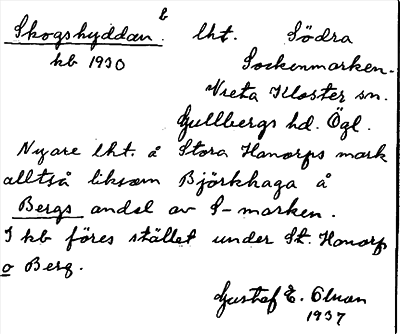 Skogshyddan. b lht. Södra
kb 1930 Sockenmarken.
Vreta Kloster sn.
Gullbergs hd. Ögl.
Nyare lht. å Stora Honorps mark
alltså liksom Björkhaga å
Bergs andel av S-marken.
I kb föres stället under St. Honorp
o Berg.
Gustaf E.
1937